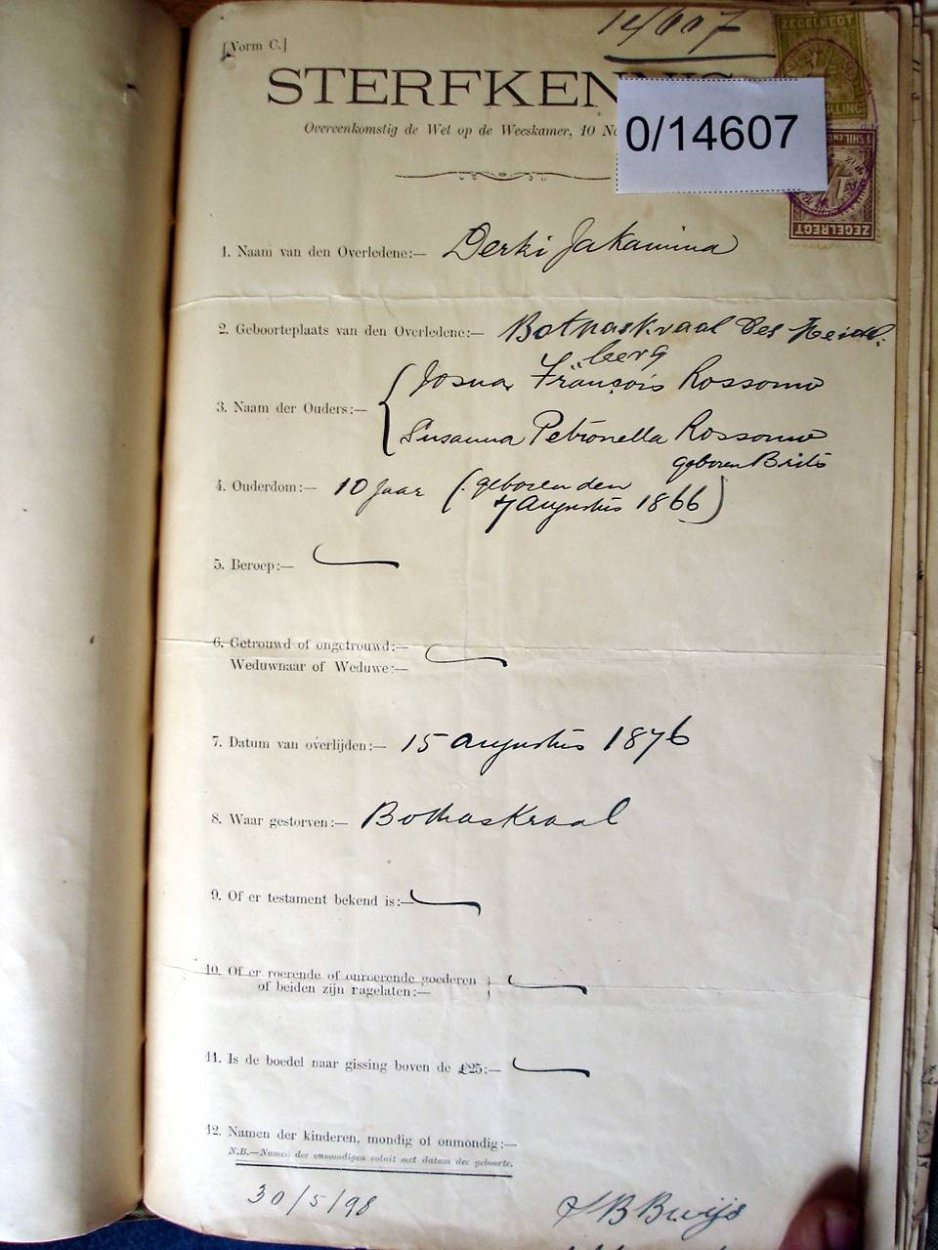 [Vorm C.]
14/607
ZEGELRECT
STERFKENNIS
Overeenkomstig de Wet op de Weeskamer, 10 No
0/14607
ZEGELRECT
1. Naam van den Overledene:— Derki Jakamina
2. Geboorteplaats van den Overledene:— Bothaskraal Des Heidel-
berg
3. Naam der Ouders:— Josua François Rossouw
Susanna Petronella Rossouw
geboren Brits
4. Ouderdom:— 10 Jaar (geboren den
7 Augustus 1866)
5. Beroep:—
6. Getrouwd of ongetrouwd:—
Weduwnaar of Weduwe:—
7. Datum van overlijden:— 15 Augustus 1876
8. Waar gestorven:— Bothaskraal
9. Of er testament bekend is:—
10. Of er roerende of onroerende goederen
of beiden zijn ragelaten:—
11. Is de boedel naar gissing boven de £25:—
12. Namen der kinderen, mondig of onmondig:—
N.B.—Namen der onmondigen voluit met datum der geboorte.
30/5/98